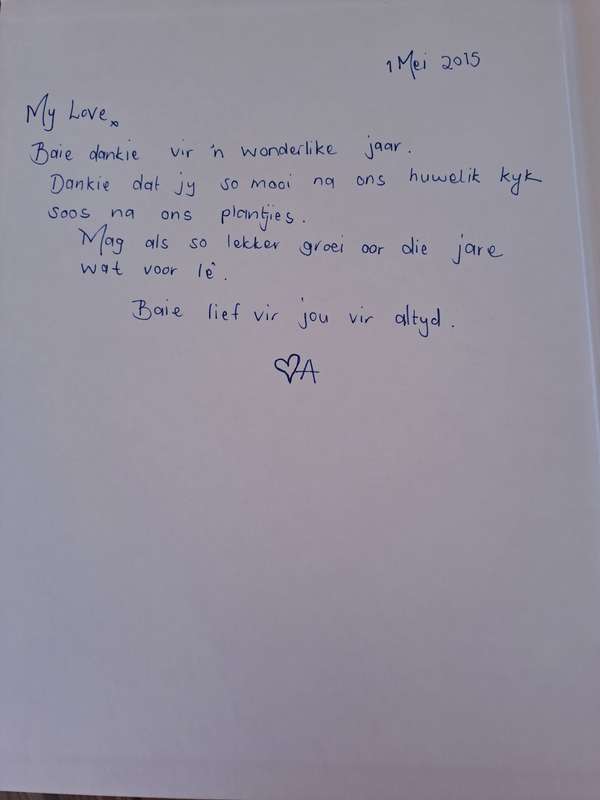 1 Mei 2015
My Love x
Baie dankie vir 'n wonderlike jaar.
Dankie dat jy so mooi na ons huwelik kyk
soos na ons plantjies.
Mag als so lekker groei oor die jare
wat voor lê.
Baie lief vir jou vir altyd.
♡A